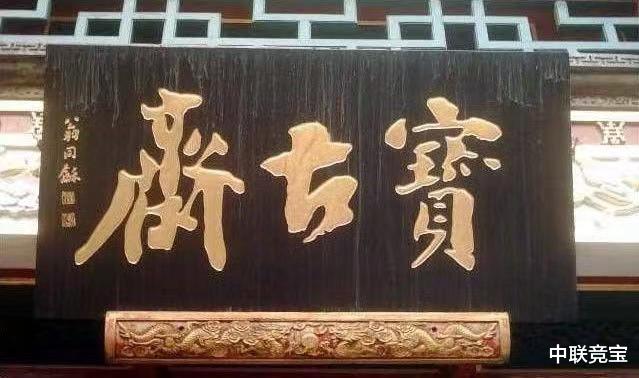 寶古齋
翁同龢
中联竞宝